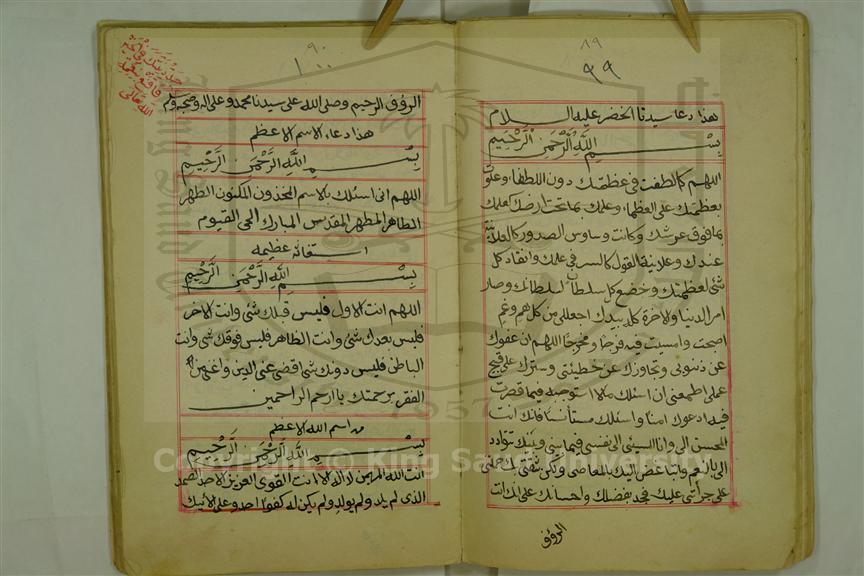 ٨٩
٩٩
هذا دعا سيدنا الخضر عليه السلام
بسم الله الرحمن الرحيم
اللهم كما لطفت في عظمتك دون اللطفا، وعلوت
بعظمتك على العظما، وعلمك بما تحت ارضك كعلمك
بما فوق عرشك وكانت وساوس الصدور كالعلانية
عندك وعلانية القول كالسر في علمك وانقاد كل
شئ لعظمتك وخضع كل سلطان لسلطانك وصار
امر الدنيا والاخرة كله بيدك اجعل لي من كل هم وغم
اصبحت وامسيت فيه فرجا ومخرجا اللهم ان عفوك
عن ذنوبي وتجاوزك عن خطيئتي وسترك على قبيح
عملي اطمعني ان اسئلك مالا استوجبه فيما قصرت
فيه ادعوك امنا واسئلك مستأنسا فانك انت
المحسن الي وانا المسئ الى نفسي فيما بيني وبينك تتودد
الي بالنعم واتبغض اليك بالمعاصي ولكن ثقتي بك حملتني
على جرأتي عليك فجد بفضلك واحسانك علي انك انت
الرؤف
٩٠
١٠٠
الرؤف الرحيم وصلى الله على سيدنا محمد وعلى اله وصحبه وسلم
هذا دعاء الاسم الاعظم
بسم الله الرحمن الرحيم
اللهم اني اسئلك بالاسم المخذون المكنون الطهر
الطاهر المطهر المقدس المبارك الحي القيوم
استغاثه عظيمه
بسم الله الرحمن الرحيم
اللهم انت الاول فليس قبلك شئ وانت الاخر
فليس بعدك شئ وانت الظاهر فليس فوقك شئ وانت
الباطن فليس دونك شئ اقضي عني الدين واغنني من
الفقر برحمتك يا ارحم الراحمين
اسم الله الاعظم
بسم الله الرحمن الرحيم
انت الله المهيمن لا اله الا انت القوى العزيز الاحد الصمد
الذى لم يلد ولم يولد ولم يكن له كفوا احد وعلى
الله تعالى
1957
Copyright © King Saud University